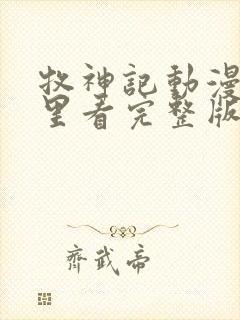 牧神記動漫
里看完整版
齊武帝